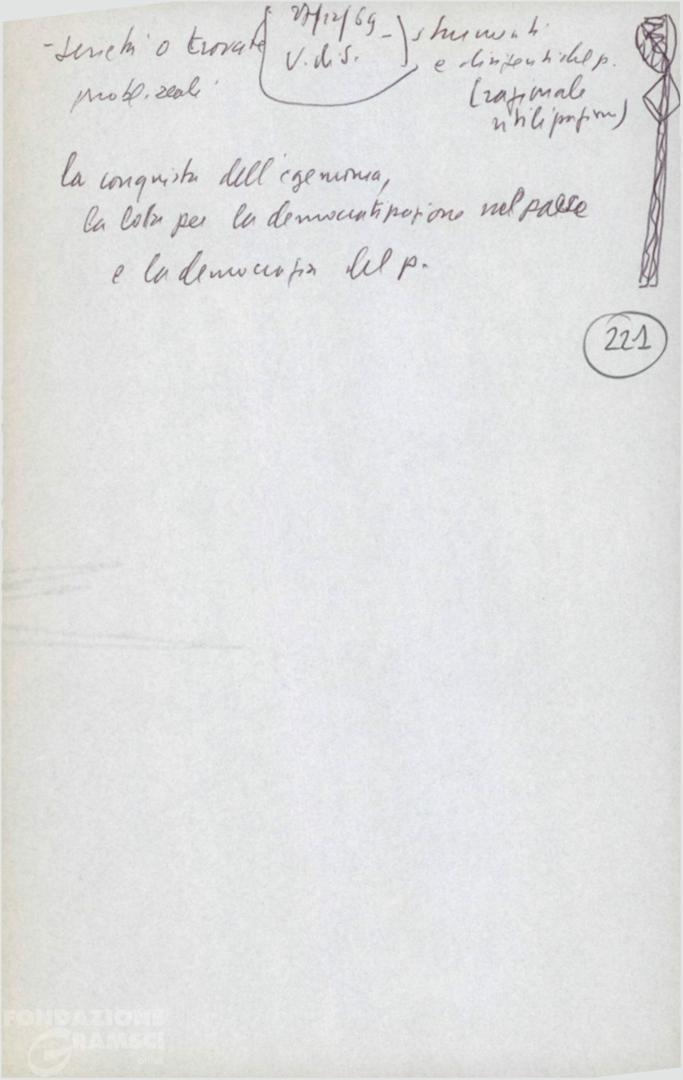 27/12/69
V. di S.
- o trovate
probl. reali
- strumenti
e dirigenti del p.
(razionale
utilizzazione)
la conquista dell'egemonia,
la lotta per la democratizzazione nel paese
e la democrazia del p.
221
FONDAZIONE
GRAMSCI